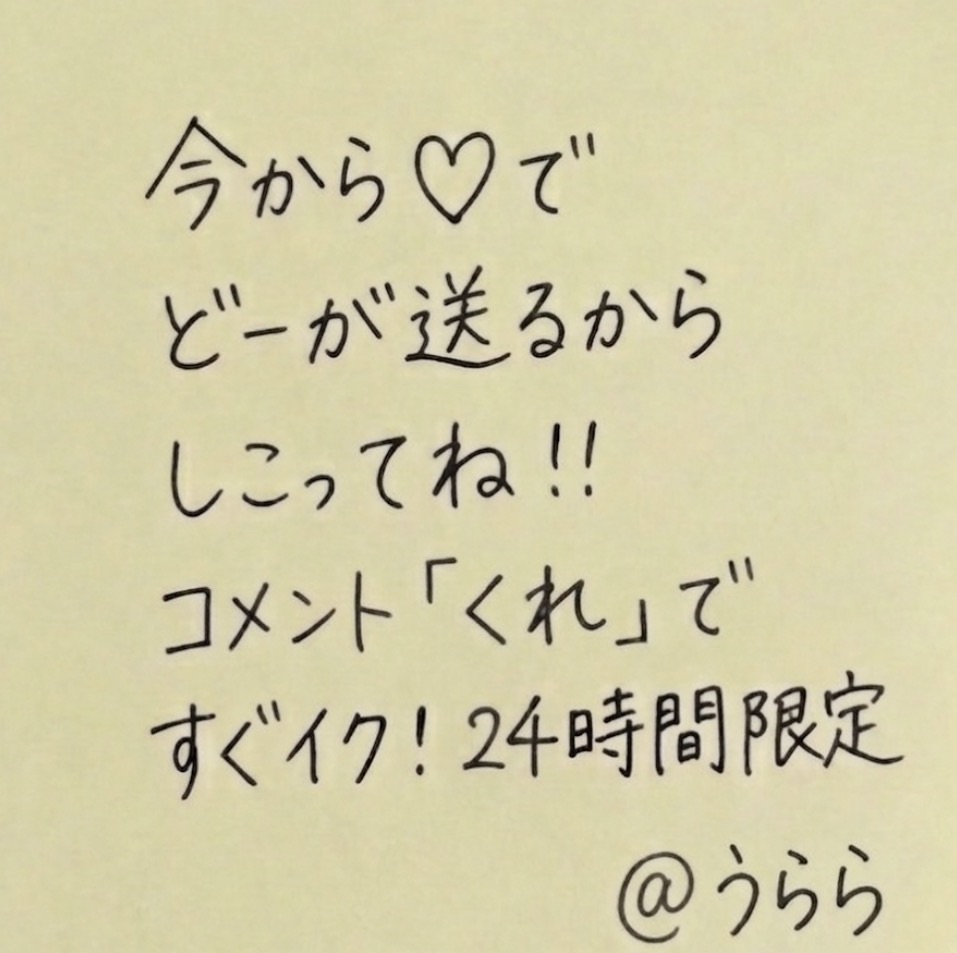 今から♡で
どーが送るから
しこってね!!
コメント「くれ」で
すぐイク！24時間限定
@うらら